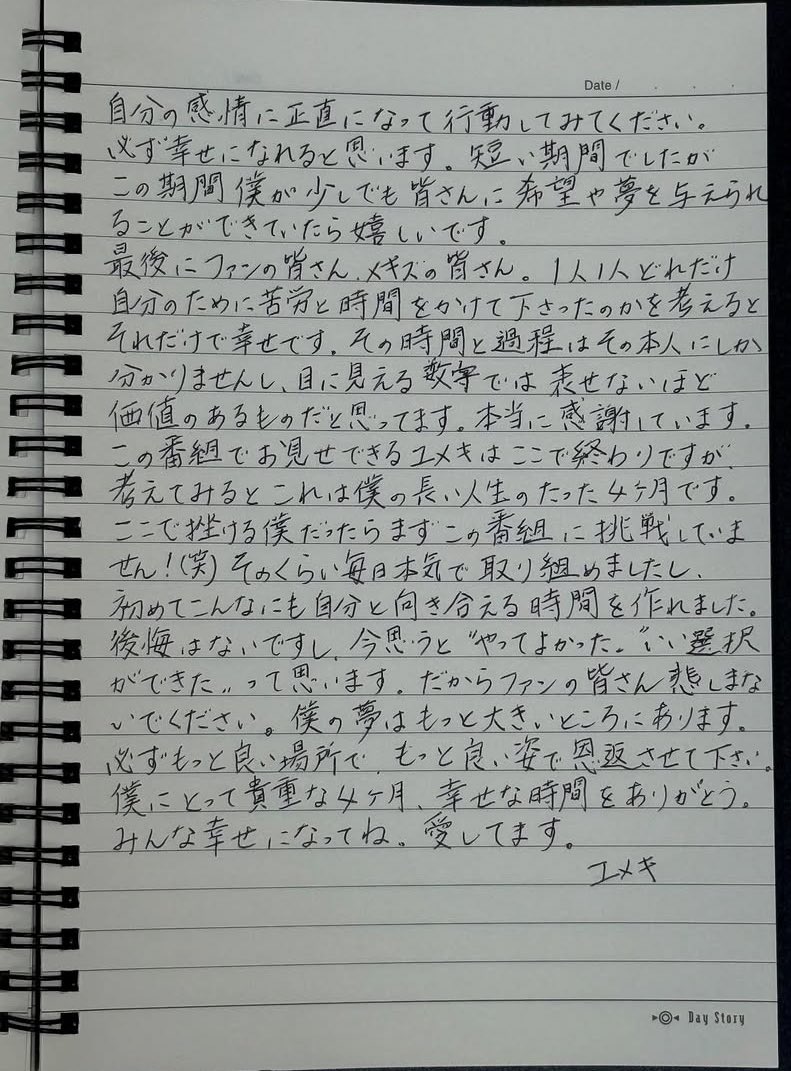 Date / . . .
自分の感情に正直になって行動してみてください。
必ず幸せになれると思います。短い期間でしたが
この期間僕が少しでも皆さんに希望や夢を与えられ
ることができていたら嬉しいです。
最後にファンの皆さん、メキズの皆さん。1人1人どれだけ
自分のために苦労と時間をかけて下さったのかを考えると
それだけで幸せです。その時間と過程はその本人にしか
分かりませんし、目に見える数字では表せないほど
価値のあるものだと思ってます。本当に感謝しています。
この番組でお見せできるユメキはここで終わりですが、
考えてみるとこれは僕の長い人生のたった4ヶ月です。
ここで挫ける僕だったらまずこの番組に挑戦していま
せん!(笑) そのくらい毎日本気で取り組めましたし、
初めてこんなにも自分と向き合える時間を作れました。
後悔はないですし、今思うと"やってよかった。"いい選択
ができた"って思います。だからファンの皆さん悲しまな
いでください。僕の夢はもっと大きいところにあります。
必ずもっと良い場所で、もっと良い姿で恩返させて下さい。
僕にとって貴重な4ヶ月、幸せな時間をありがとう。
みんな幸せになってね。愛してます。
ユメキ
Day Story